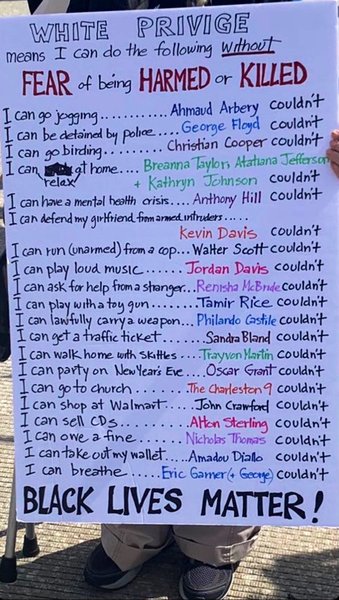 WHITE PRIVIGE
means I can do the following without
FEAR of being HARMED or KILLED
I can go jogging............ Ahmaud Arbery couldn't
I can be detained by police.... George Floyd couldn't
I can go birding......... Christian Cooper couldn't
I can relax at home.... Breanna Taylon, Atatiana Jefferson
+ Kathryn Johnson couldn't
I can have a mental health crisis.... Anthony Hill couldn't
I can defend my girlfriend from armed intruders.....
Kevin Davis couldn't
I can run (unarmed) from a cop... Walter Scott couldn't
I can play loud music...... Jordan Davis couldn't
I can ask for help from a stranger... Renisha McBride couldn't
I can play with a toy gun....... Tamir Rice couldn't
I can lawfully carry a weapon... Philando Castile couldn't
I can get a traffic ticket........ Sandra Bland couldn't
I can walk home with skittles.... Trayvon Martin couldn't
I can party on New Year's Eve.... Oscar Grant couldn't
I can go to church........ The Charleston 9 couldn't
I can shop at Walmart..... John Crawford couldn't
I can sell CDs........ Alton Sterling couldn't
I can owe a fine...... Nicholas Thomas couldn't
I can take out my wallet.... Amadou Diallo couldn't
I can breathe...... Eric Garner (+ George) couldn't
BLACK LIVES MATTER!